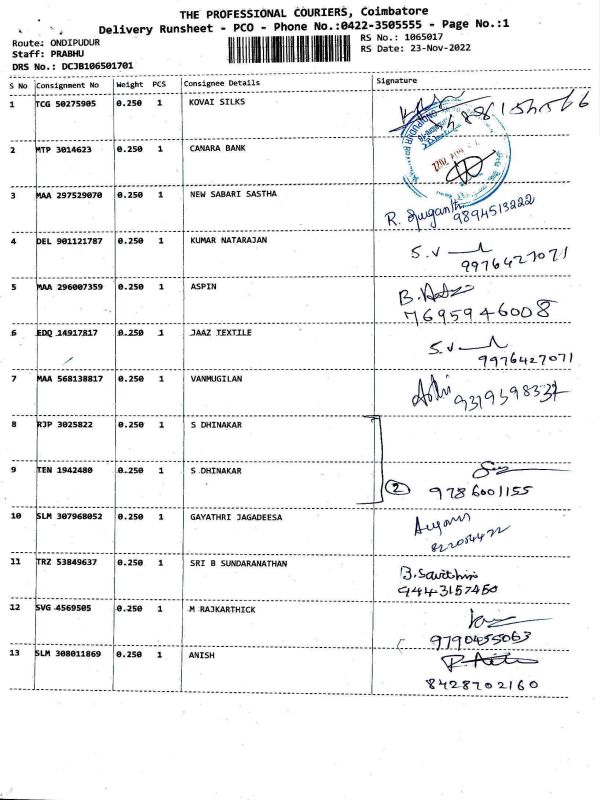 THE PROFESSIONAL COURIERS, Coimbatore
Delivery Runsheet - PCO - Phone No.:0422-3505555 - Page No.:1
Route: ONDIPUDUR
RS No.: 1065017
Staff: PRABHU
RS Date: 23-Nov-2022
DRS No.: DCJB106501701
S No Consignment No Weight PCS Consignee Details Signature
1 TCG 50275905 0.250 1 KOVAI SILKS
2 MTP 3014623 0.250 1 CANARA BANK
3 MAA 297529070 0.250 1 NEW SABARI SASTHA
R. Suganthi 9894513222
4 DEL 901121787 0.250 1 KUMAR NATARAJAN
S.V
9976427071
5 MAA 296007359 0.250 1 ASPIN
B.
7695946008
6 EDQ 14917817 0.250 1 JAAZ TEXTILE
S.V
9976427071
7 MAA 568138817 0.250 1 VANMUGILAN
8 RJP 3025822 0.250 1 S DHINAKAR
9 TEN 1942480 0.250 1 S DHINAKAR
2 9786001155
10 SLM 307968052 0.250 1 GAYATHRI JAGADEESA
11 TRZ 53849637 0.250 1 SRI B SUNDARANATHAN
B. Savithri
9443157450
12 SVG 4569505 0.250 1 M RAJKARTHICK
9790455063
13 SLM 308011869 0.250 1 ANISH
8428702160